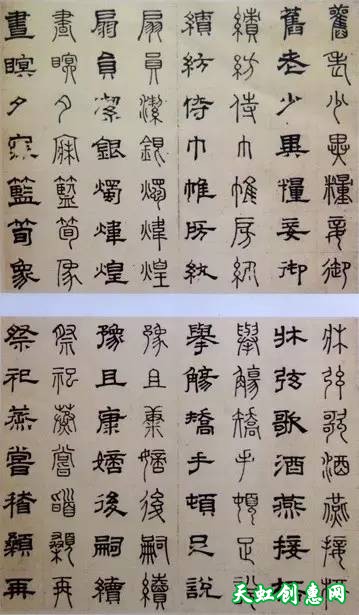 舊老少異糧妾御
舊老少異糧妾御
績紡侍巾帷房紈
績紡侍巾帷房紈
扇員潔銀燭煒煌
扇員潔銀燭煒煌
晝瞑夕寐籃筍像
晝瞑夕寐籃筍象
牀弦歌酒燕接杯
牀弦歌酒燕接杯
舉觴矯手頓足說
舉觴矯手頓足說
豫且康嫡後嗣續
豫且康嫡後嗣續
祭祀蒸嘗稽顙再
祭祀蒸嘗稽顙再
天虹创惠网